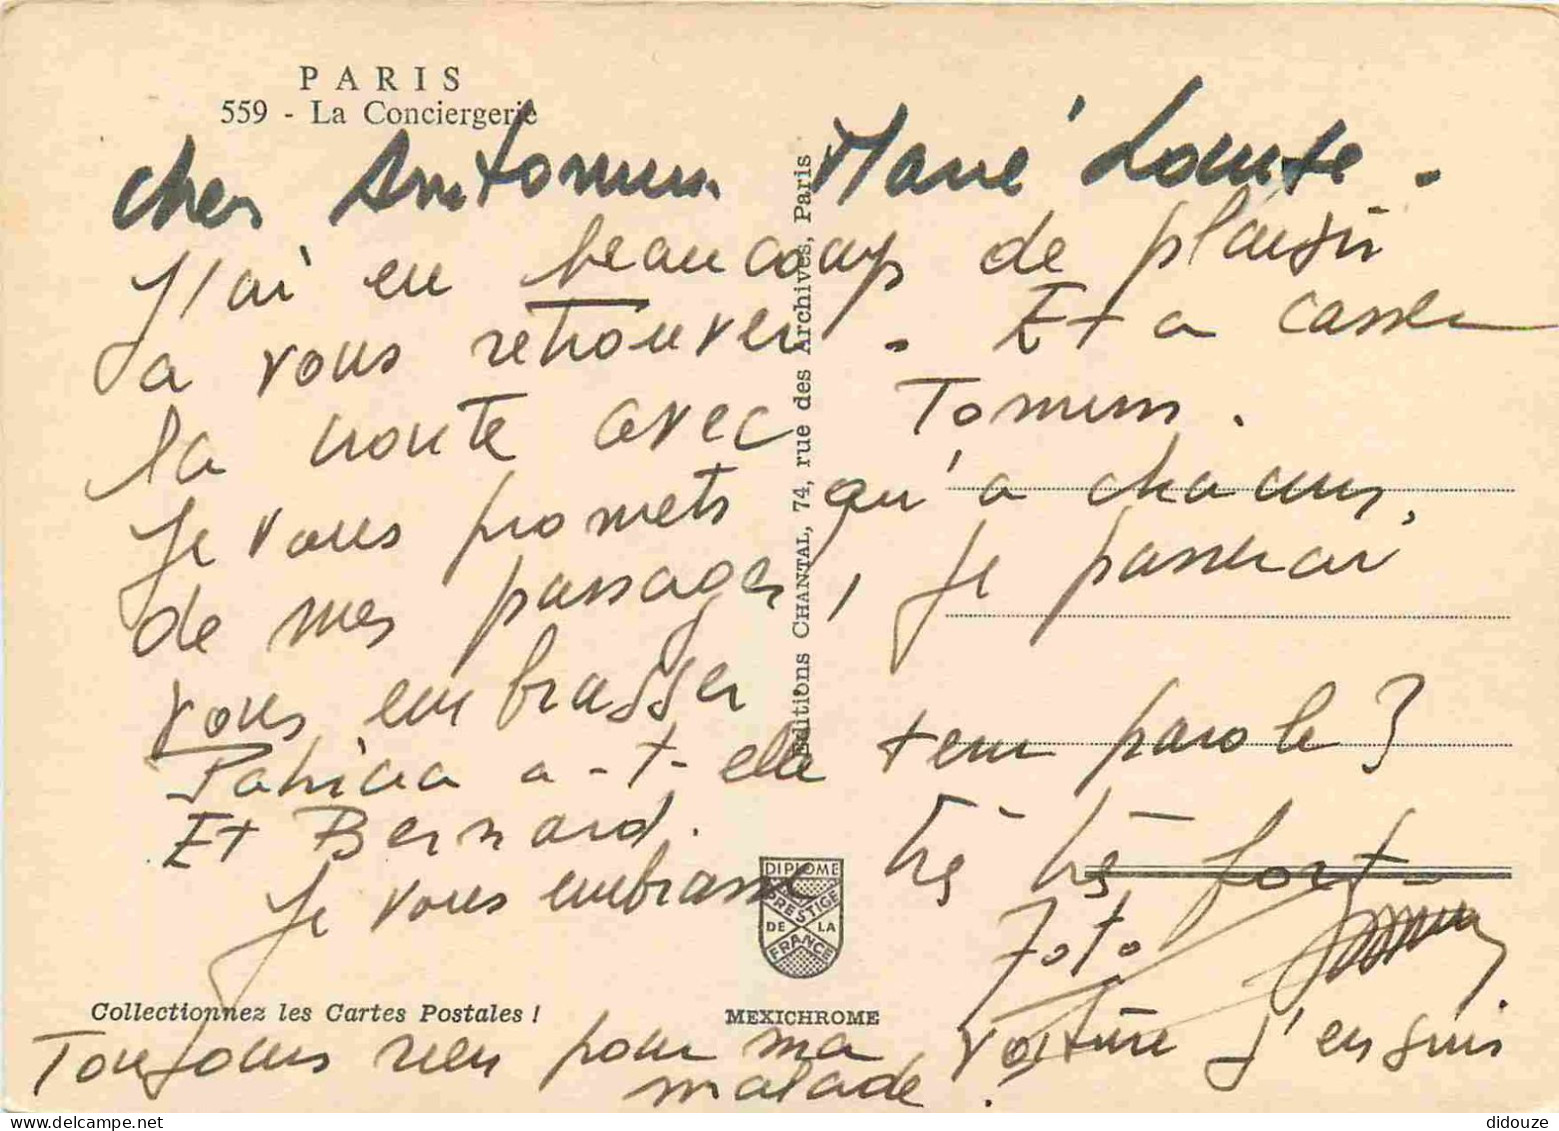 PARIS
559 - La Conciergerie
cher Antonin Marie Louise.
J'ai eu beaucoup de plaisir
a vous retrouver. Et a casser
la croute avec Tonin.
Je vous promets qu'a chacun,
de mes passages, je passerai
vous embrasser
Patricia a-t-elle tenu parole?
Et Bernard.
Je vous embrasse très très fort-
Toto
Toujours rien pour ma voiture j'en suis
malade.
Editions CHANTAL, 74, rue des Archives, Paris
DIPLOME
PRESTIGE
DE LA
FRANCE
Collectionnez les Cartes Postales !
MEXICHROME
didouze